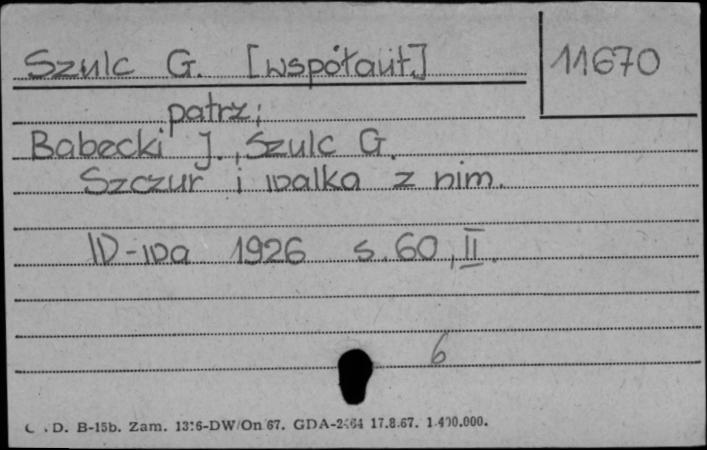 Szulc G. [współaut.]
11670
patrz:
Babecki J., Szulc G.
Szczur i walka z nim.
W-wa 1926 s. 60, II.
6
D. B-15b. Zam. 1316-DW/On 67. GDA-2464 17.8.67. 1.400.000.